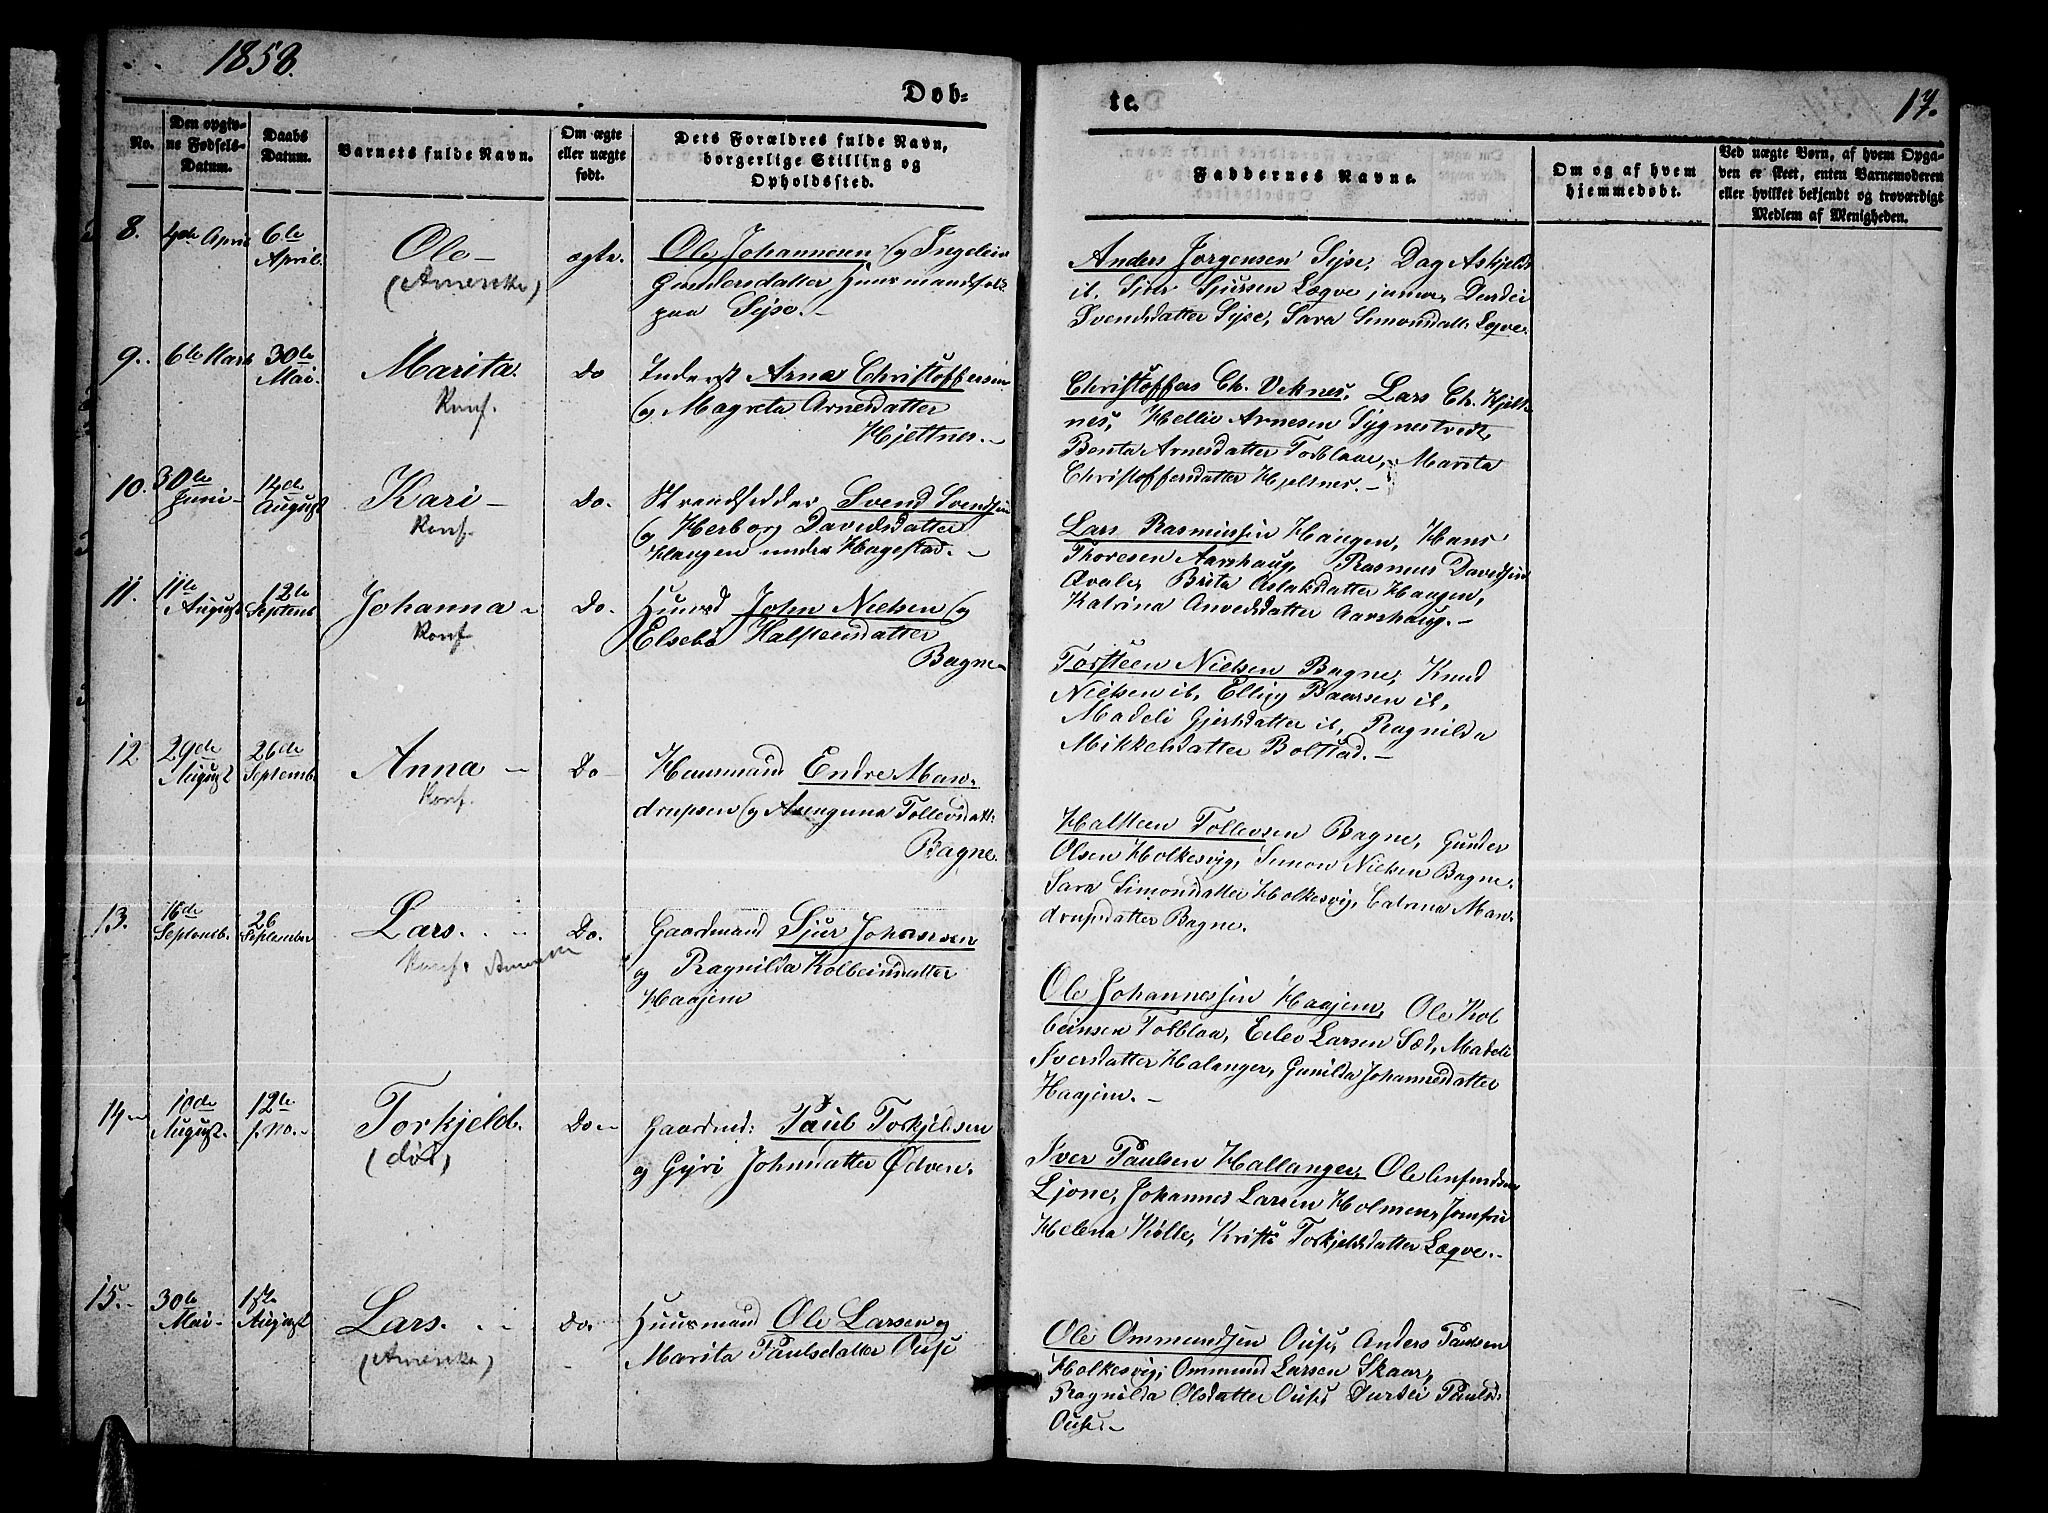 1858.
Døb=
te.
17.
No.
Den opgiv-
ne Fødsels-
Datum.
Daabs
Datum.
Barnets fulde Navn.
Om ægte
eller uægte
født.
Dets Forældres fulde Navn,
borgerlige Stilling og
Opholdssted.
Faddernes Navne.
Om og af hvem
hjemmedøbt.
Ved uægte Børn, af hvem Opga-
ven er skeet, enten Barnemoderen
eller hvilket bekjendt og troværdigt
Medlem af Menigheden.
8. 4de April 6te April. Ole- (Amerika) ægte.
Ole Johannesen og Ingeleiv
Gundersdatter Huusmandsfolk
paa Syse.-
Anders Jørgensen Syse, Dag Askjelds
ib. Sjur Sjursen Lægve junior, Durdei
Svendsdatter Syse, Sara Simonsdatt. Lægve.
9. 6te Marts 30te Mai. Marita. Konf. Do
Inderst Arne Christoffersen
og Magreta Arnesdatter
Hjeltnes.-
Christoffers Ch. Viknes, Lars Ch. Hjelt-
nes, Hellie Arnesen Sygnestvedt,
Benta Arnesdatter Torblaae, Marita
Christoffersdatter Hjeltnes.-
10. 30te Juni- 14de August Kari- Konf. Do.
Strandsidder Svend Svendsen
og Herborg Davidsdatter
Haugen under Hagestad.-
Lars Rasmussen Haugen, Hans
Thoresen Aarshaug, Rasmus Davidsen
Qvale, Brita Aslaksdatter Haugen,
Katrina Anvedsdatter Aarshaug.-
11. 11te August 12te Septemb Johanna- Konf. Do.
Huusmd John Nielsen og
Elsebe Halsteensdatter
Bagne-
Torsteen Nielsen Bagne, Knud
Nielsen ib, Elling Baarsen ib,
Madeli Gjertsdatter ib, Ragnilda
Mikkelsdatter Bolstad.-
12. 29de August 26de Septemb. Anna- Konf. Do-
Huusmand Endre Man-
drupsen og Anenguna Tollevsdatt:
Bagne.
Halsteen Tollevsen Bagne, Gunder
Olsen Holkesvig, Simon Nielsen Bagne.
Sara Simonsdatter Holkesvig, Catrina Man-
drupsdatter Bagne.
13. 16de Septemb. 26 September Lars. Konf. Amerika Do.
Gaardmand Sjur Johansen
og Ragnilda Kolbeinsdatter
Haajem
Ole Johannessen Haajem, Ole Kol
beinsen Torblaa, Eilev Larsen Sæd, Madeli
Iversdatter Halanger, Gunilda Johannesdatter
Haajem.-
14- 10de August. 12te f. no.- Torkjeld. (død) Do.-
Gaardmd: Paul Torkjelsen
og Gyri Johnsdatter Ødven.
Iver Paulsen Hallanger, Ole Amundsen
Ljone, Johannes Larsen Holmen, Jomfru
Helena Kølle, Kristi Torkjeldsdatter Lægve.-
15.- 30te Mai- 1ste August Lars. (Amerika) Do.
Huusmand Ole Larsen og
Marita Paulsdatter Ouse
Ole Ommundsen Ouse, Anders Paulsen
Holkesvig, Ommund Larsen Skaar,
Ragnilda Olsdatter Ouse Durdei Paulsd.
Ouse.-